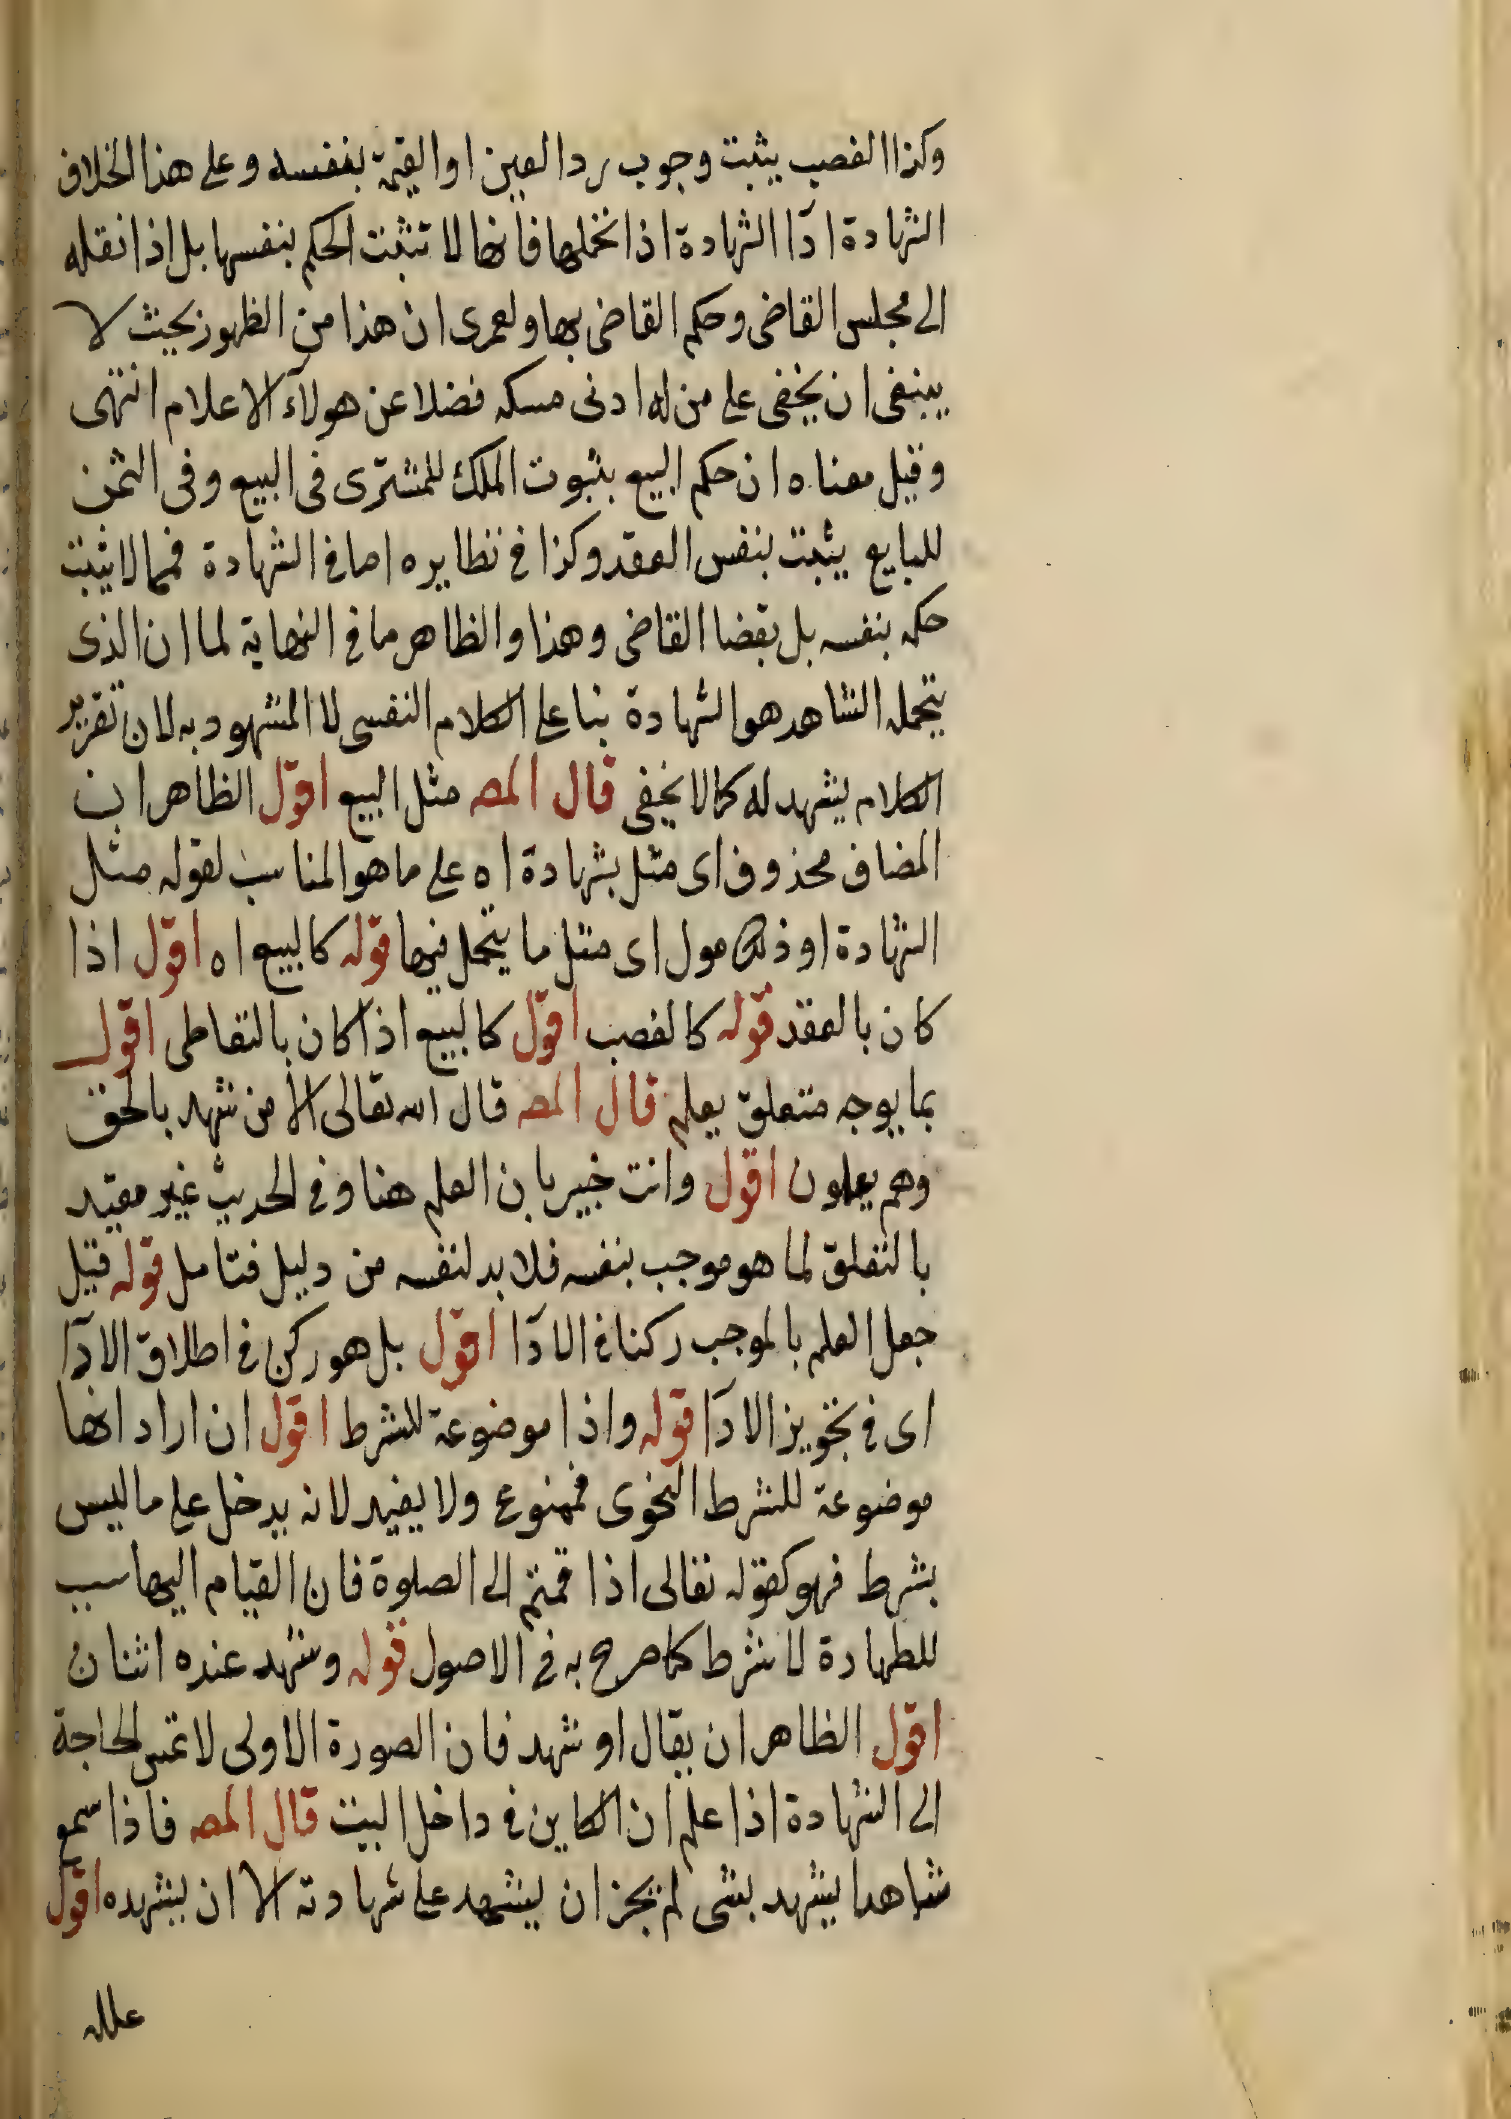 وكذا الغصب يثبت وجوب رد العين او القيمة بنفسه وعلى هذا الخلاف
الشهادة اداا الشهادة اذا تحملها فانها لا تثبت الحكم بنفسها بل اذا نقله
الى مجلس القاضى وحكم القاضى بها ولعمرى ان هذا من الظهور بحيث لا
ينبغى ان يخفى على من له ادنى مسكه فضلا عن هولآء الاعلام انتهى
وقيل معناه ان حكم البيع بثبوت الملك للمشترى فى البيع وفى الثمن
للبايع يثبت بنفس العقد وكذا فى نظايره اما فى الشهادة فمما لا يثبت
حكمه بنفسه بل بقضا القاضى وهذا والظاهر ما فى النهاية لما ان الذى
يتحمله الشاهد هو الشهادة بنا على الكلام النفسى لا المشهود به لان تقرير
الكلام يشهد له كما لا يخفى قال المصـ مثل البيع اقول الظاهر ان
المضاف محذوف اى مثل بشهادة اه على ما هو المناسب لقوله مثل
الشهادة او ذلك مول اى مثل ما يتحمل فيها قوله كالبيع اه اقول اذا
كان بالعقد قوله كالغصب اقول كالبيع اذا كان بالتعاطى اقول
بما يوجه متعلق يعلم قال المصـ قال الله تعالى الا من شهد بالحق
وهم يعلمون اقول وانت خبير بان العلم هنا وفى الحديث غير مقيد
بالتعلق لما هو موجب بنفسه فلا بد لنفسه من دليل فتامل قوله قيل
جعل العلم بالموجب ركنا فى الادآا اقول بل هو ركن فى اطلاق الادآا
اى فى تجويز الادآا قوله واذا موضوعة للشرط اقول ان اراد انها
موضوعة للشرط النحوى فممنوع ولا يفيد لانه يدخل على ما ليس
بشرط فهو كقوله تعالى اذا قمتم الى الصلوة فان القيام اليها سبب
للطهارة لا شرط كما صرح به فى الاصول قوله وشهد عنده اثنان
اقول الظاهر ان يقال او شهد فان الصورة الاولى لا تمس الحاجة
الى الشهادة اذا علم ان الكاين فى داخل البيت قال المصـ فاذا سمع
شاهدا يشهد بشى لم يجز ان يشهد على شهادته الا ان يشهده اقول
علله